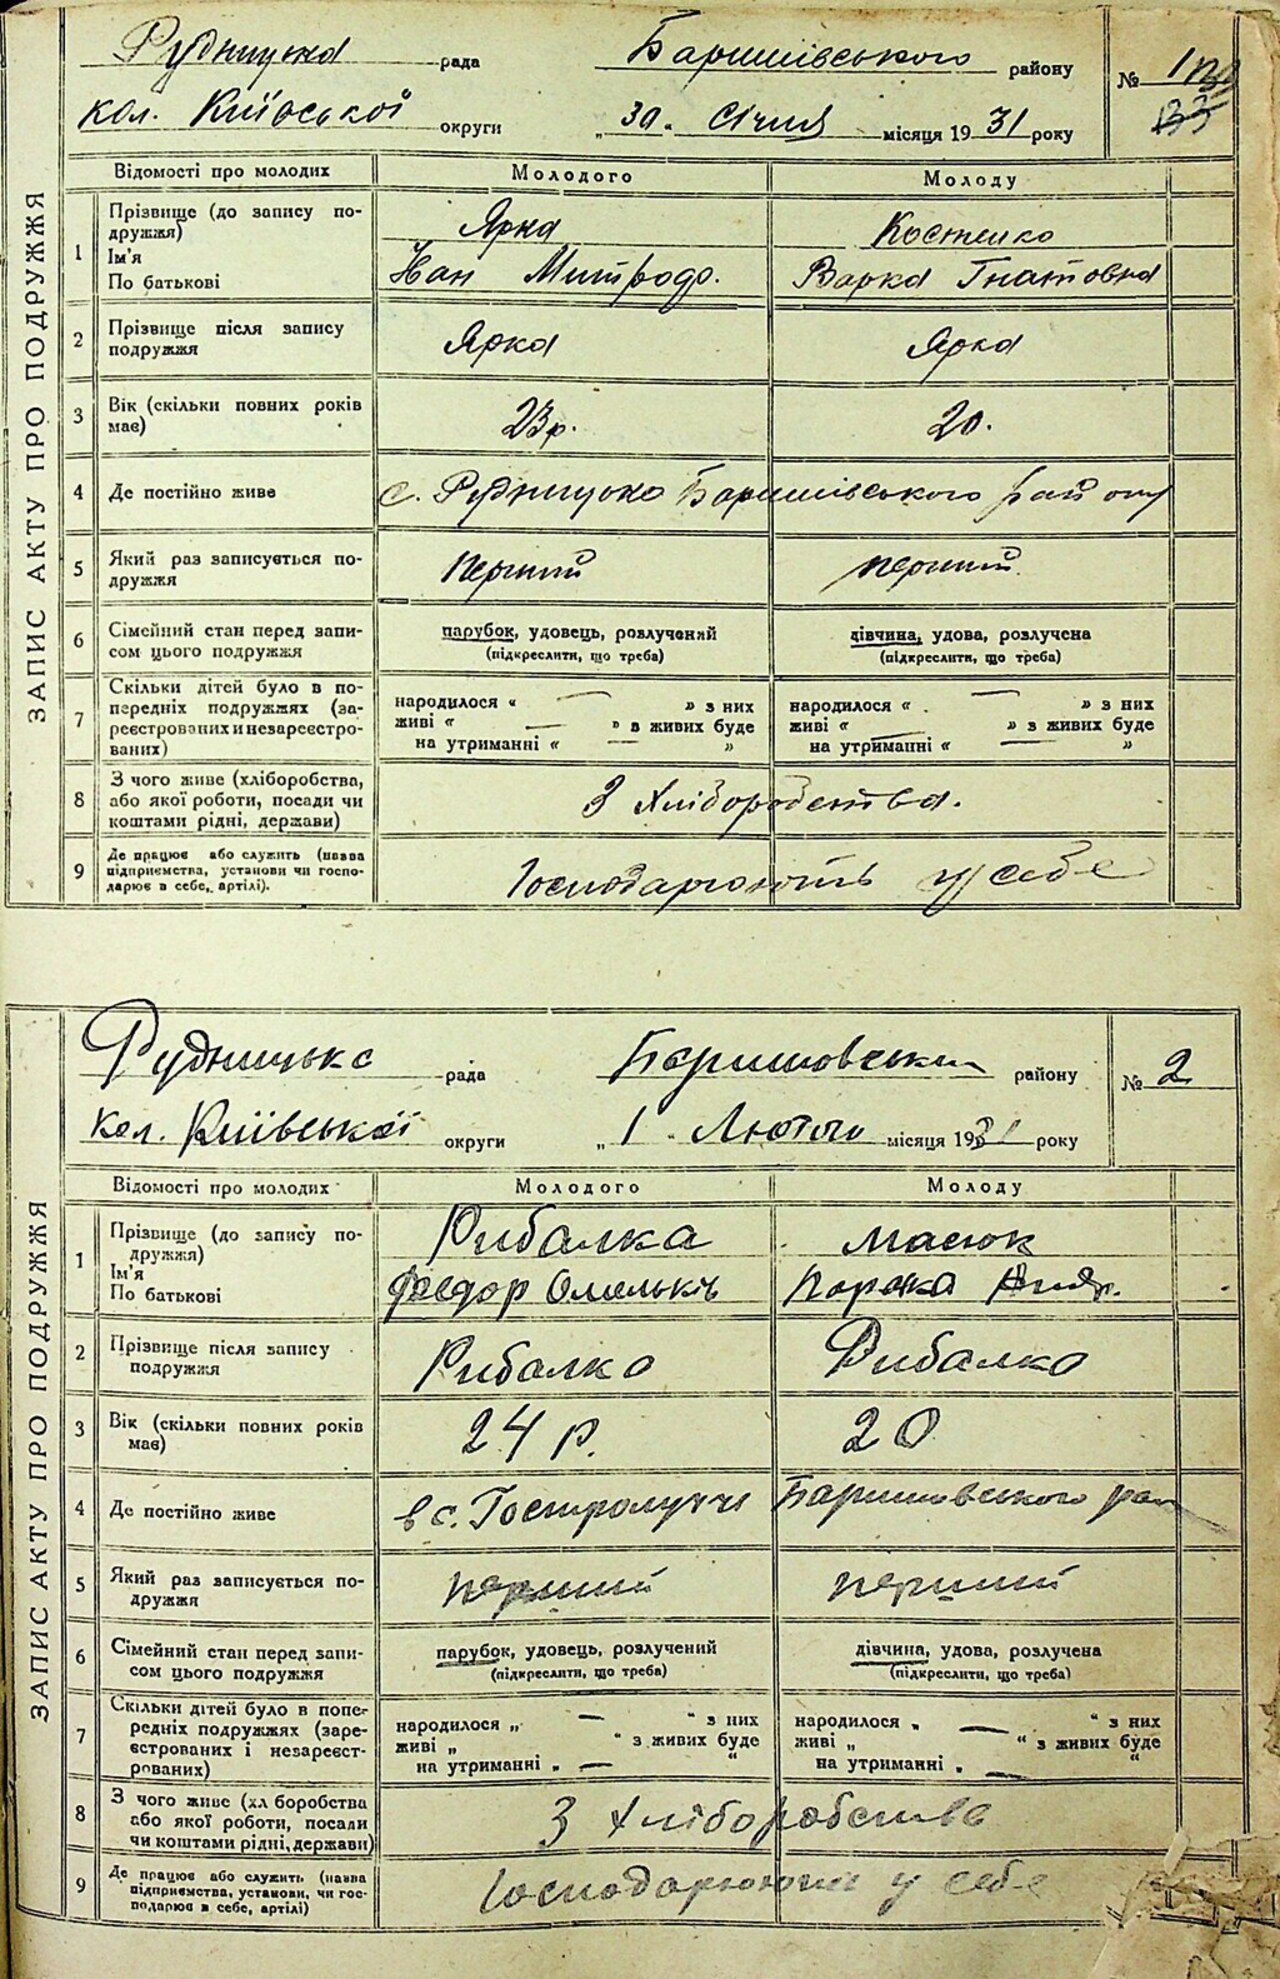 ЗАПИС АКТУ ПРО ПОДРУЖЖЯ
Рудницька рада Баришівського району № 1
кол. Київської округи „30" Січня місяця 1931 року
Відомості про молодих Молодого Молоду
1 Прізвище (до запису по-
дружжя) Ярка Костенко
Ім'я
По батькові Іван Митрофо. Варка Гнатовна
2 Прізвище після запису
подружжя Ярка Ярка
3 Вік (скільки повних років
має) 23р. 20.
4 Де постійно живе с. Рудницько Баришівського району
5 Який раз записується по-
дружжя перший перший
6 Сімейний стан перед запи-
сом цього подружжя
парубок, удовець, розлучений
(підкреслити, що треба)
дівчина, удова, розлучена
(підкреслити, що треба)
7 Скільки дітей було в по-
передніх подружжях (за-
реєстрованих и незареєстро-
ваних)
народилося « — » з них
живі « — » в живих буде
на утриманні « »
народилося « — » з них
живі « — » з живих буде
на утриманні « — »
8 З чого живе (хліборобства,
або якої роботи, посади чи
коштами рідні, держави) З хліборобства.
9 Де працює або служить (назва
підприємства, установи чи госпо-
дарює в себе, артілі). Господарюють у себе
ЗАПИС АКТУ ПРО ПОДРУЖЖЯ
Рудницька рада Баришовськи району № 2
кол. Київської округи „1" Лютого місяця 1931 року
Відомості про молодих Молодого Молоду
1 Прізвище (до запису по-
дружжя) Рибалка Масюк
Ім'я
По батькові Федор Омельків Параска
2 Прізвище після запису
подружжя Рибалка Рибалка
3 Вік (скільки повних років
має) 24 р. 20
4 Де постійно живе в с. Гостролуччі Баришовського рай
5 Який раз записується по-
дружжя перший перший
6 Сімейний стан перед запи-
сом цього подружжя
парубок, удовець, розлучений
(підкреслити, що треба)
дівчина, удова, розлучена
(підкреслити, що треба)
7 Скільки дітей було в попе-
редніх подружжях (заре-
єстрованих і незареєст-
рованих)
народилося „ — " з них
живі „ " з живих буде
на утриманні „ — "
народилося „ — " з них
живі „ " з живих буде
на утриманні „ — "
8 З чого живе (хл боробства
або якої роботи, посади
чи коштами рідні, держави) З хліборобства
9 Де працює або служить (назва
підприємства, установи, чи гос-
подарює в себе, артілі) Господарюють у себе